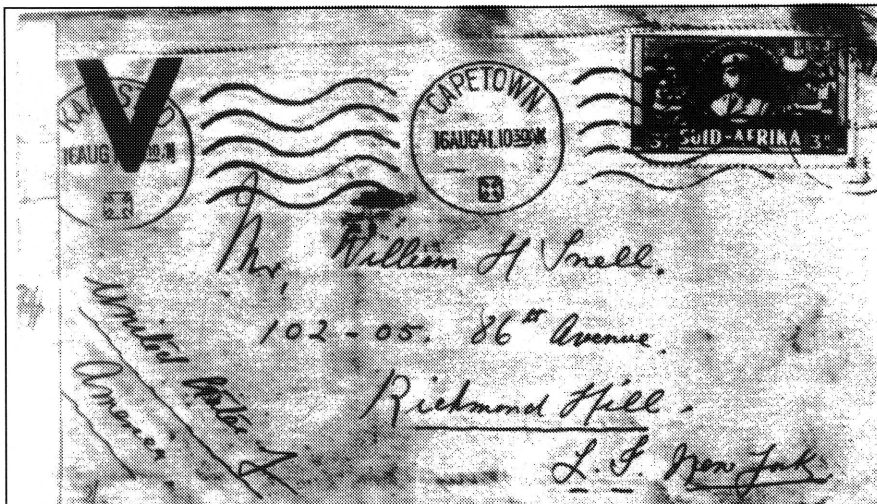 V
KAAPSTAD
16AUG
CAPETOWN
16AUG41.1030AM
3D SUID-AFRIKA 3D
Mr. William H Snell.
102-05. 86th Avenue.
Richmond Hill.
L. I. New York.
United States of
America